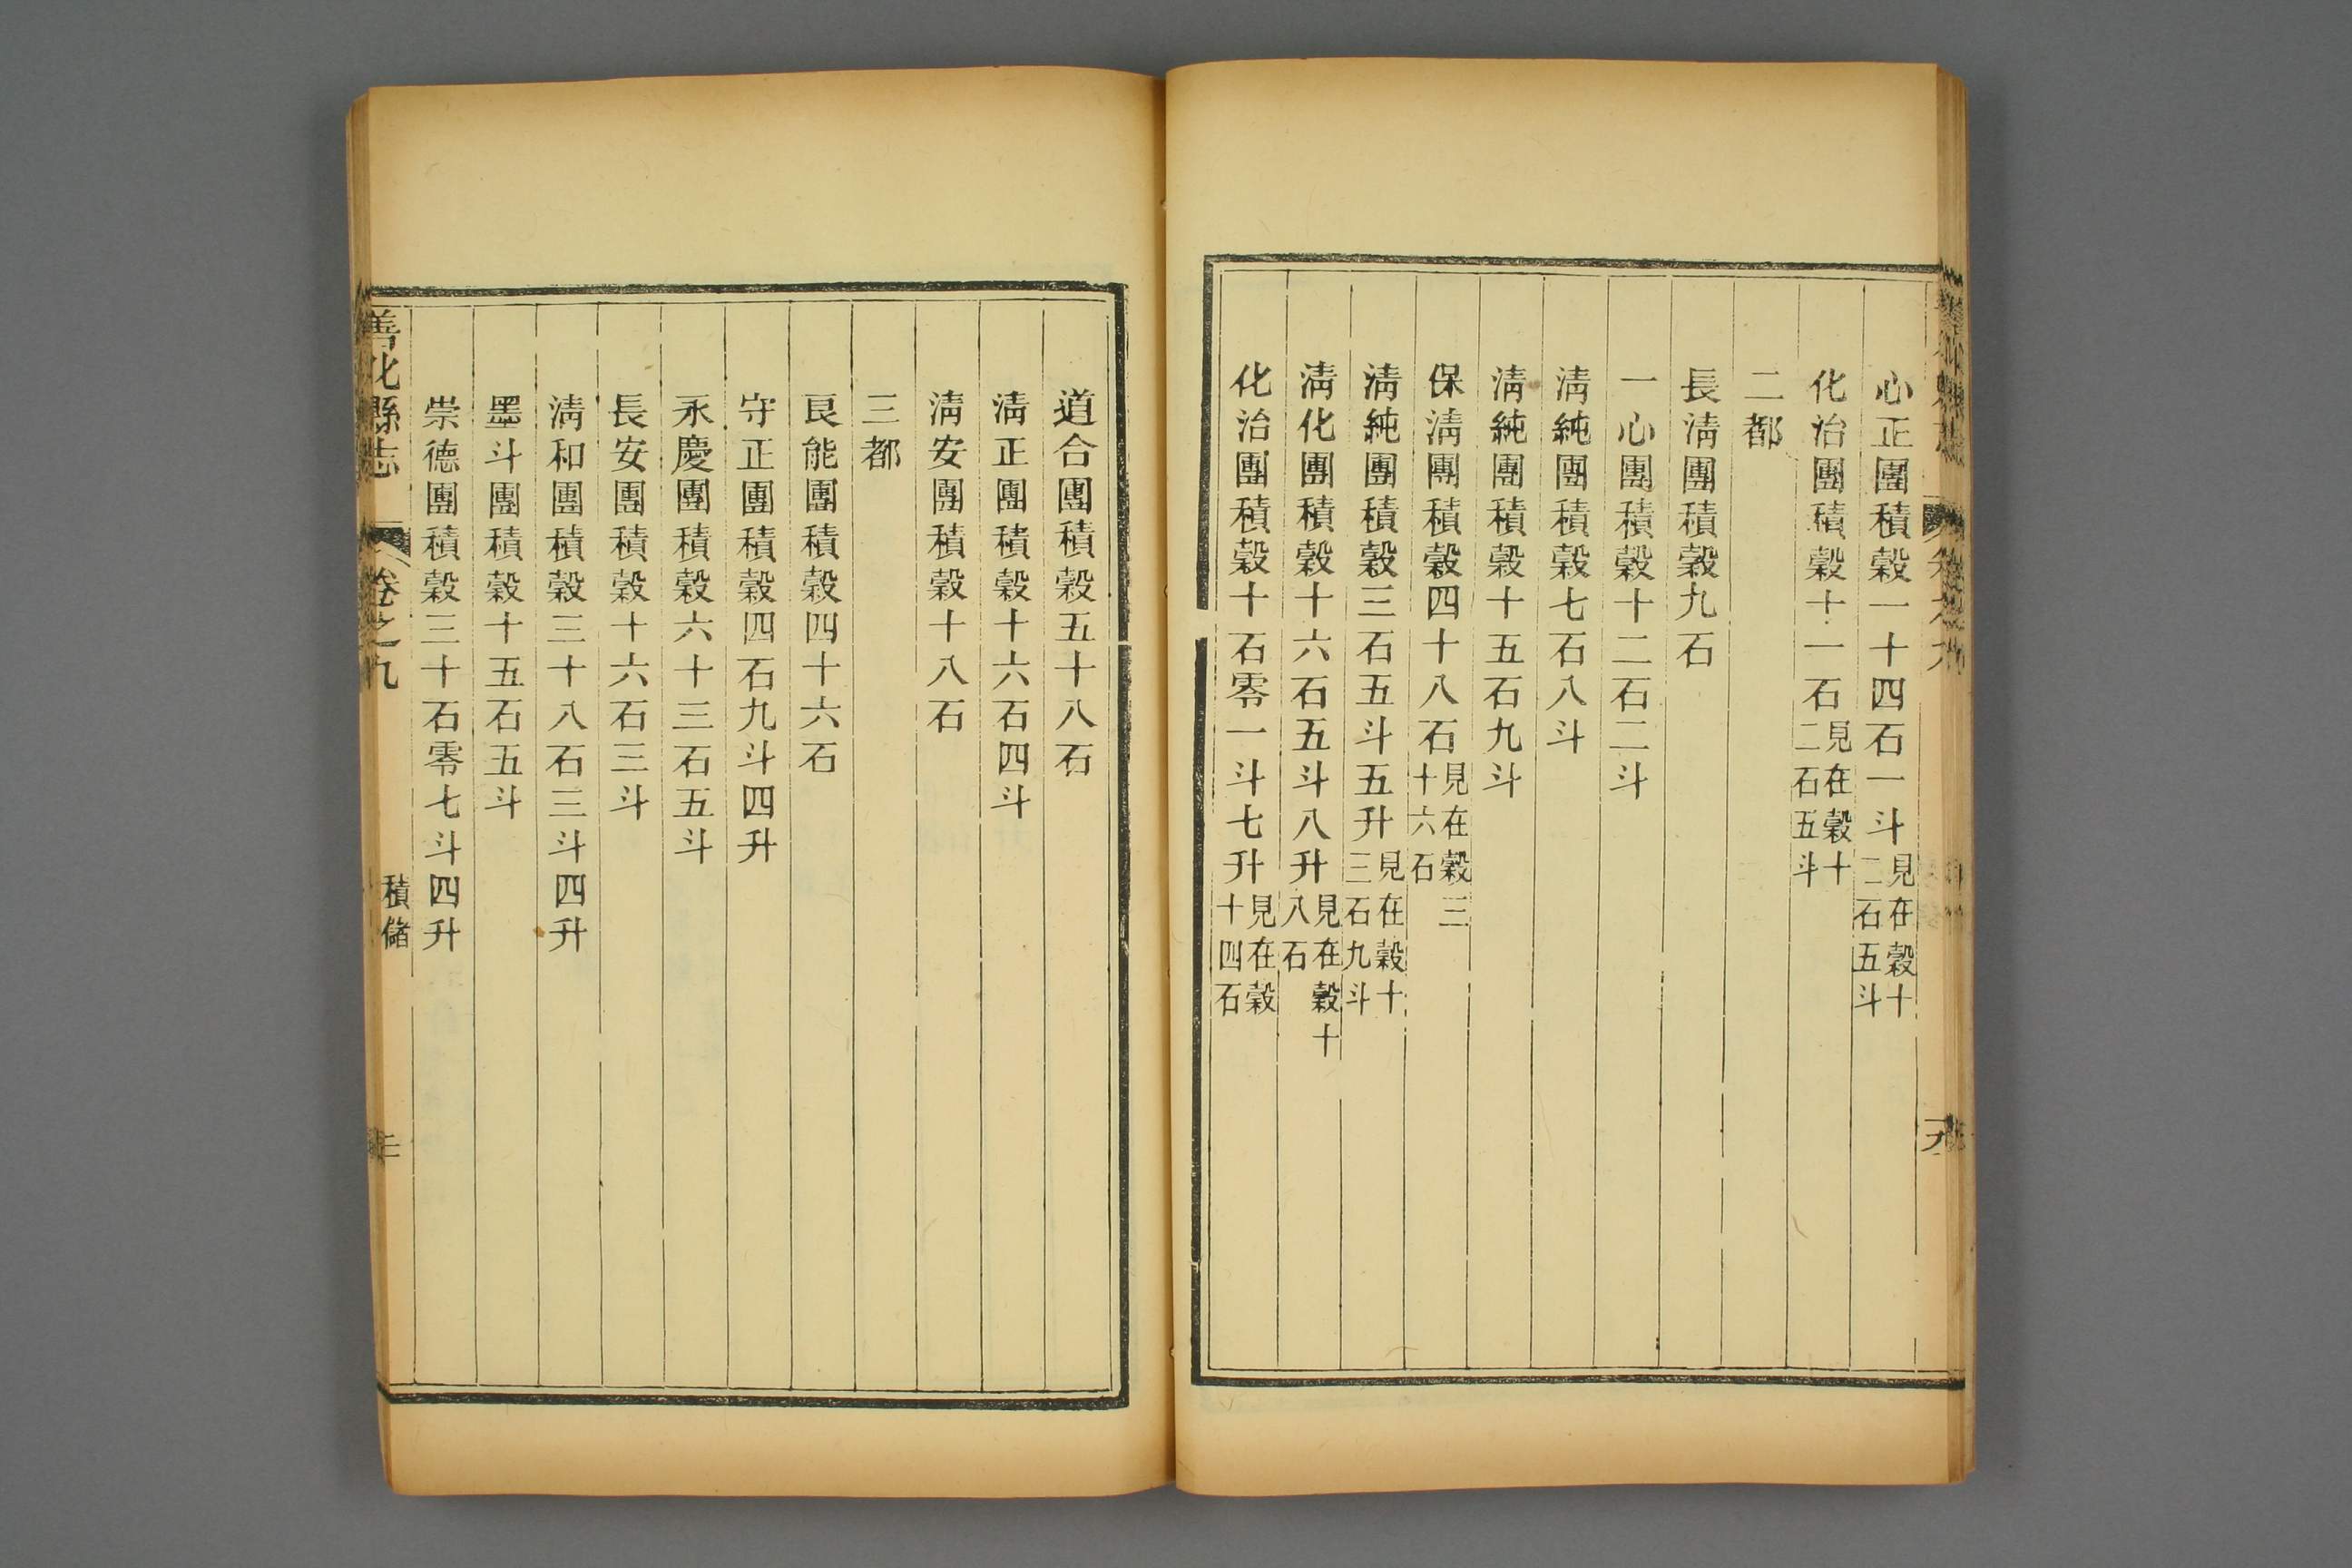 心正團積穀一十四石一斗見在穀十二石五斗
化治團積穀十一石見在穀十二石五斗
二都
長淸團積穀九石
一心團積穀十二石二斗
淸純團積穀七石八斗
淸純團積穀十五石九斗
保淸團積穀四十八石見在穀三十六石
淸純團積穀三石五斗五升見在穀十三石九斗
淸化團積穀十六石五斗八升見在穀十八石
化治團積穀十石零一斗七升見在穀十四石
道合團積穀五十八石
淸正團積穀十六石四斗
淸安團積穀十八石
三都
良能團積穀四十六石
守正團積穀四石九斗四升
永慶團積穀六十三石五斗
長安團積穀十六石三斗
淸和團積穀三十八石三斗四升
墨斗團積穀十五石五斗
崇德團積穀三十石零七斗四升
善化縣志 卷之九 積儲